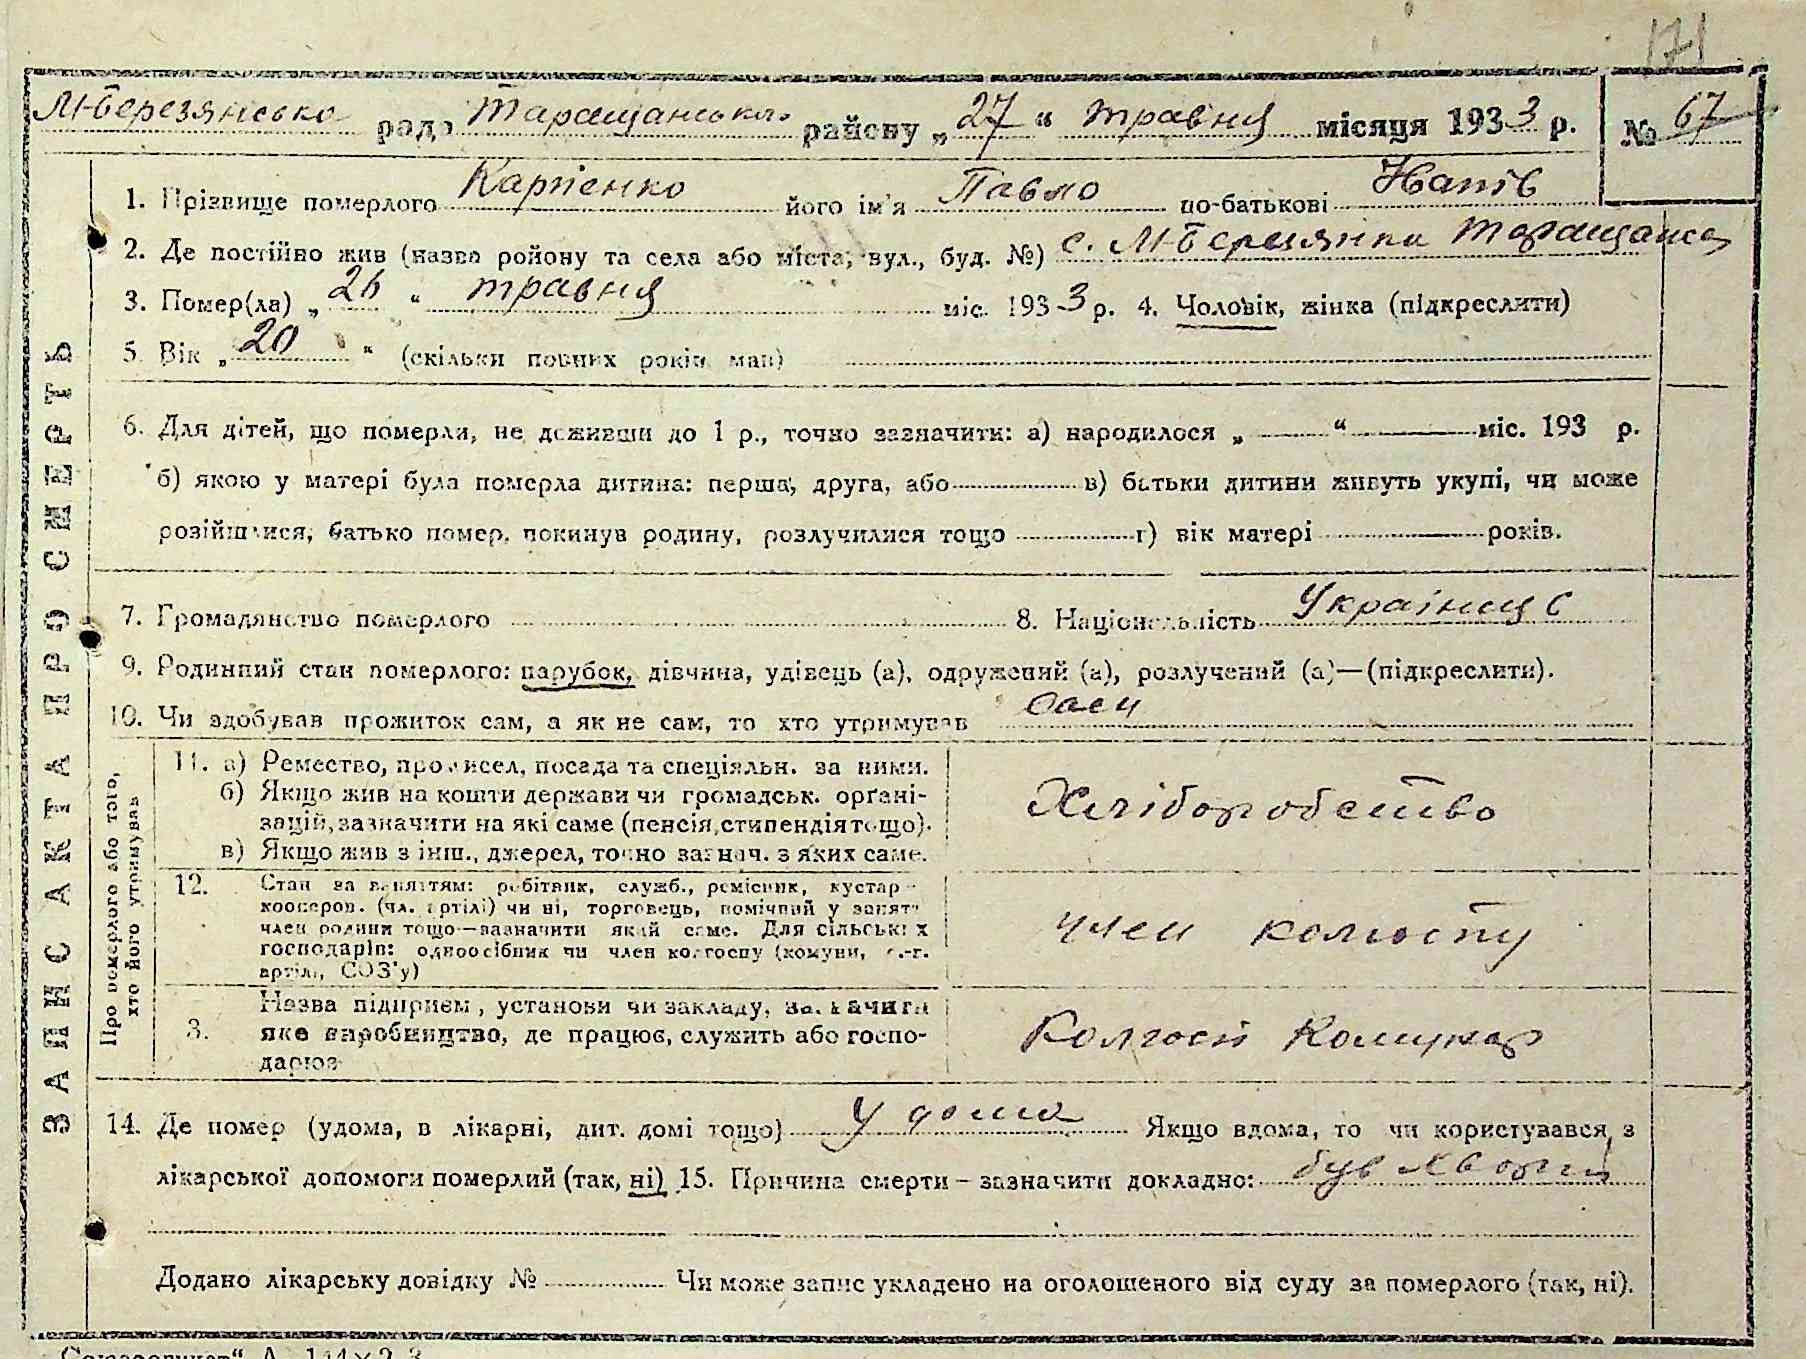 171
М-Березянсько рада Таращанськ. району „27" травня місяця 1933 р. № 67
ЗАПИС АКТА ПРО СМЕРТЬ
1. Прізвище померлого Карпенко його ім'я Павло по-батькові
2. Де постійно жив (назва району та села або міста, вул., буд. №) с. М-Березянка Таращанськ
3. Помер(ла) „26" травня міс. 1933 р. 4. Чоловік, жінка (підкреслити)
5. Вік „20" (скільки повних років мав)
6. Для дітей, що померли, не доживши до 1 р., точно зазначити: а) народилося „ " міс. 193 р.
б) якою у матері була померла дитина: перша, друга, або в) батьки дитини живуть укупі, чи може
розійшлися, батько помер, покинув родину, розлучилися тощо г) вік матері років.
7. Громадянство померлого 8. Національність Українец
9. Родинний стан померлого: парубок, дівчина, удівець (а), одружений (а), розлучений (а)—(підкреслити).
10. Чи здобував прожиток сам, а як не сам, то хто утримував сам
Про померлого або того, хто його утримував
11. а) Ремество, промисел, посада та спеціяльн. за ними.
б) Якщо жив на кошти держави чи громадськ. орґані-
зацій, зазначити на які саме (пенсія, стипендія тощо).
в) Якщо жив з інш., джерел, точно зазнач. з яких саме.
Хліборобство
12. Стан за заняттям: робітник, служб., ремісник, кустар-
кооперов. (чл. артілі) чи ні, торговець, помічний у занят.
член родини тощо—зазначити який саме. Для сільських
господарів: одноосібник чи член колгоспу (комуни, с.-г.
артілі, СОЗ'у)
член колгоспу
3. Назва підприєм, установи чи закладу, зазначити
яке виробництво, де працює, служить або госпо-
дарює
Колгосп Комунар
14. Де помер (удома, в лікарні, дит. домі тощо) у дома Якщо вдома, то чи користувався з
лікарської допомоги померлий (так, ні) 15. Причина смерти – зазначити докладно: був хворий
Додано лікарську довідку № Чи може запис укладено на оголошеного від суду за померлого (так, ні).